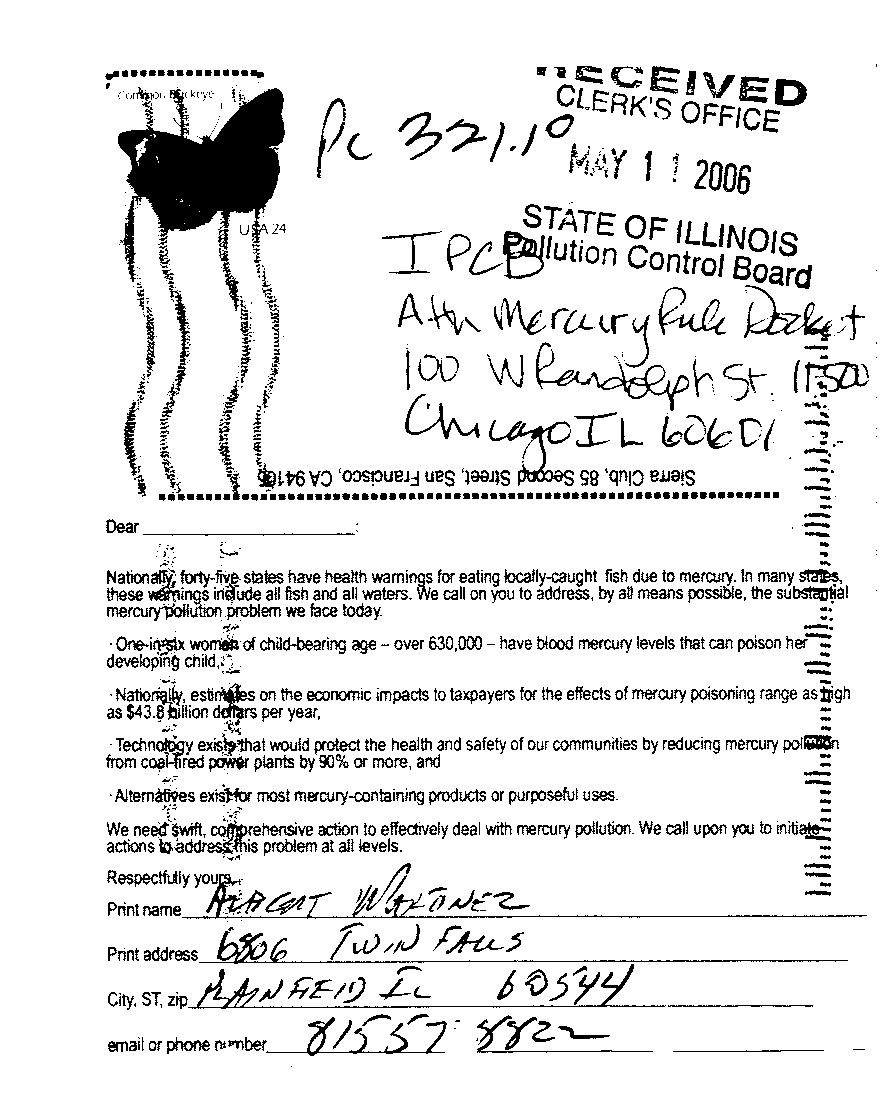 Common Buckeye
USA 24
PC 321.10
RECEIVED
CLERK'S OFFICE
MAY 11 2006
STATE OF ILLINOIS
Pollution Control Board
IPCB
Attn Mercury Rule Docket
100 W Randolph St.
Chicago IL 60601
Sierra Club, 85 Second Street, San Francisco, CA 94105
Dear
Nationally, forty-five states have health warnings for eating locally-caught fish due to mercury. In many states,
these warnings include all fish and all waters. We call on you to address, by all means possible, the substantial
mercury pollution problem we face today.
· One-in-six women of child-bearing age – over 630,000 – have blood mercury levels that can poison her
developing child,
· Nationally, estimates on the economic impacts to taxpayers for the effects of mercury poisoning range as high
as $43.8 billion dollars per year,
· Technology exists that would protect the health and safety of our communities by reducing mercury pollution
from coal-fired power plants by 90% or more, and
· Alternatives exist for most mercury-containing products or purposeful uses.
We need swift, comprehensive action to effectively deal with mercury pollution. We call upon you to initiate
actions to address this problem at all levels.
Respectfully yours,
Print name
Print address 6806 TWIN FALLS
City, ST, zip PLAINFIELD IL 60544
email or phone number 81557 8822